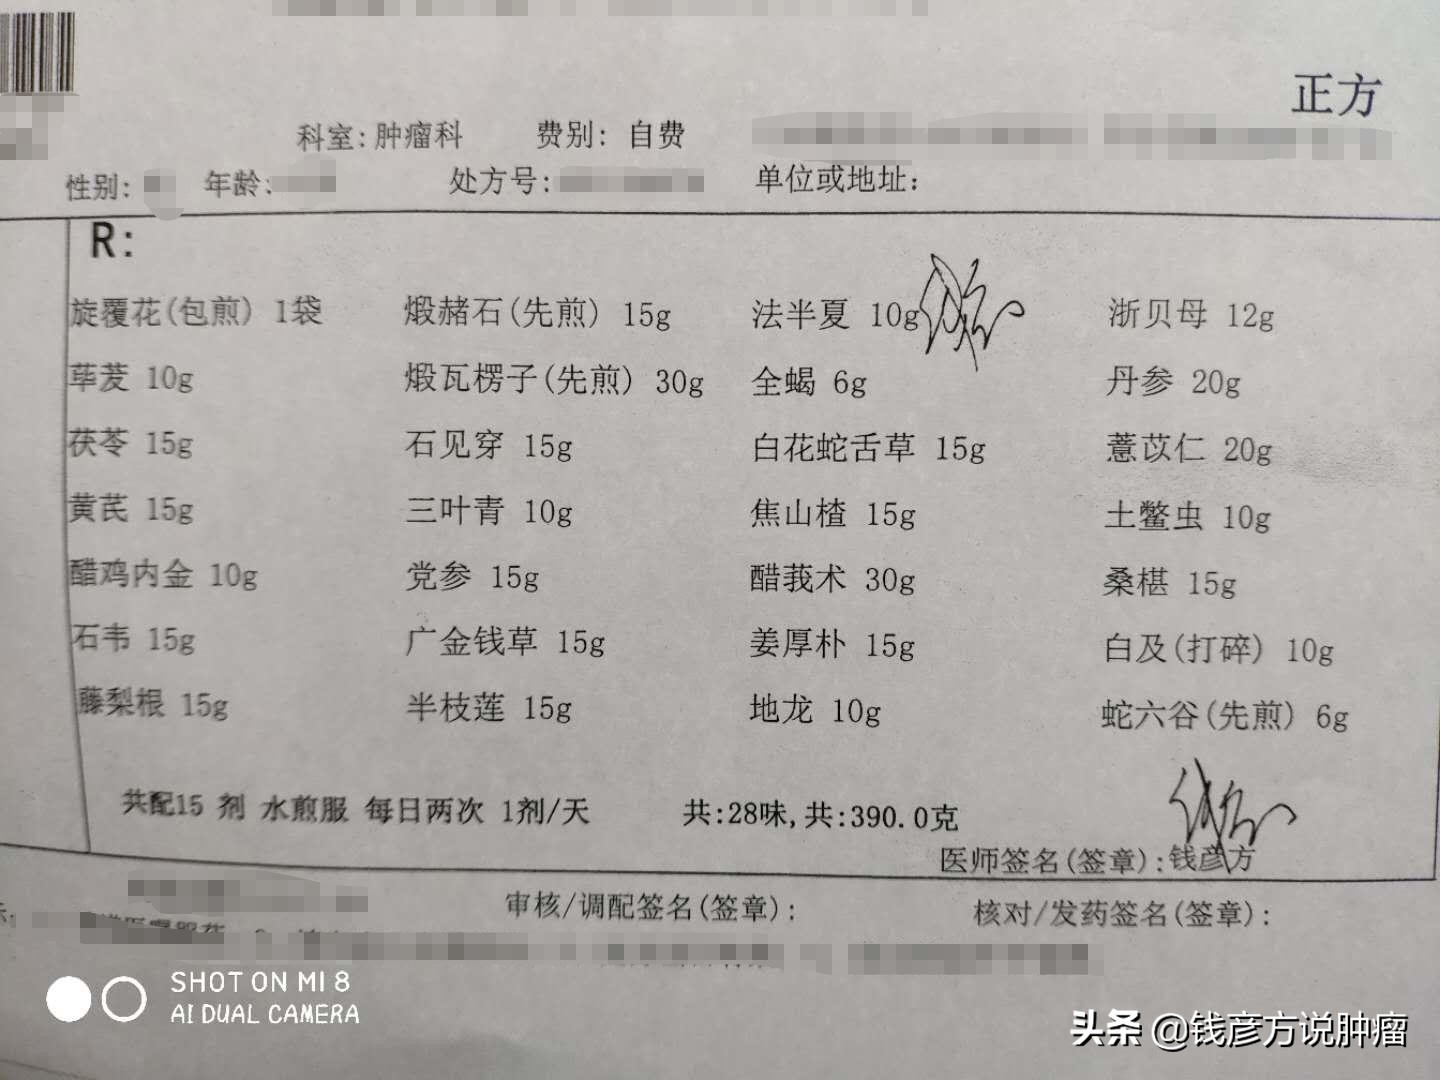 正方
科室:肿瘤科 费别: 自费
性别: 年龄: 处方号: 单位或地址:
R:
旋覆花(包煎) 1袋 煅赭石(先煎) 15g 法半夏 10g 浙贝母 12g
荜茇 10g 煅瓦楞子(先煎) 30g 全蝎 6g 丹参 20g
茯苓 15g 石见穿 15g 白花蛇舌草 15g 薏苡仁 20g
黄芪 15g 三叶青 10g 焦山楂 15g 土鳖虫 10g
醋鸡内金 10g 党参 15g 醋莪术 30g 桑椹 15g
石韦 15g 广金钱草 15g 姜厚朴 15g 白及(打碎) 10g
藤梨根 15g 半枝莲 15g 地龙 10g 蛇六谷(先煎) 6g
共配15 剂 水煎服 每日两次 1剂/天 共:28味,共:390.0克
医师签名(签章):钱彦方
审核/调配签名(签章): 核对/发药签名(签章):
SHOT ON MI 8
AI DUAL CAMERA
头条 @钱彦方说肿瘤